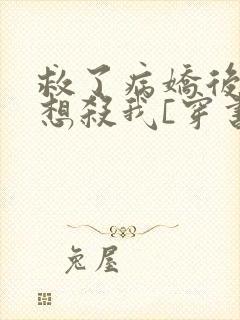 救了病嬌後
想殺我[穿書
兔屋